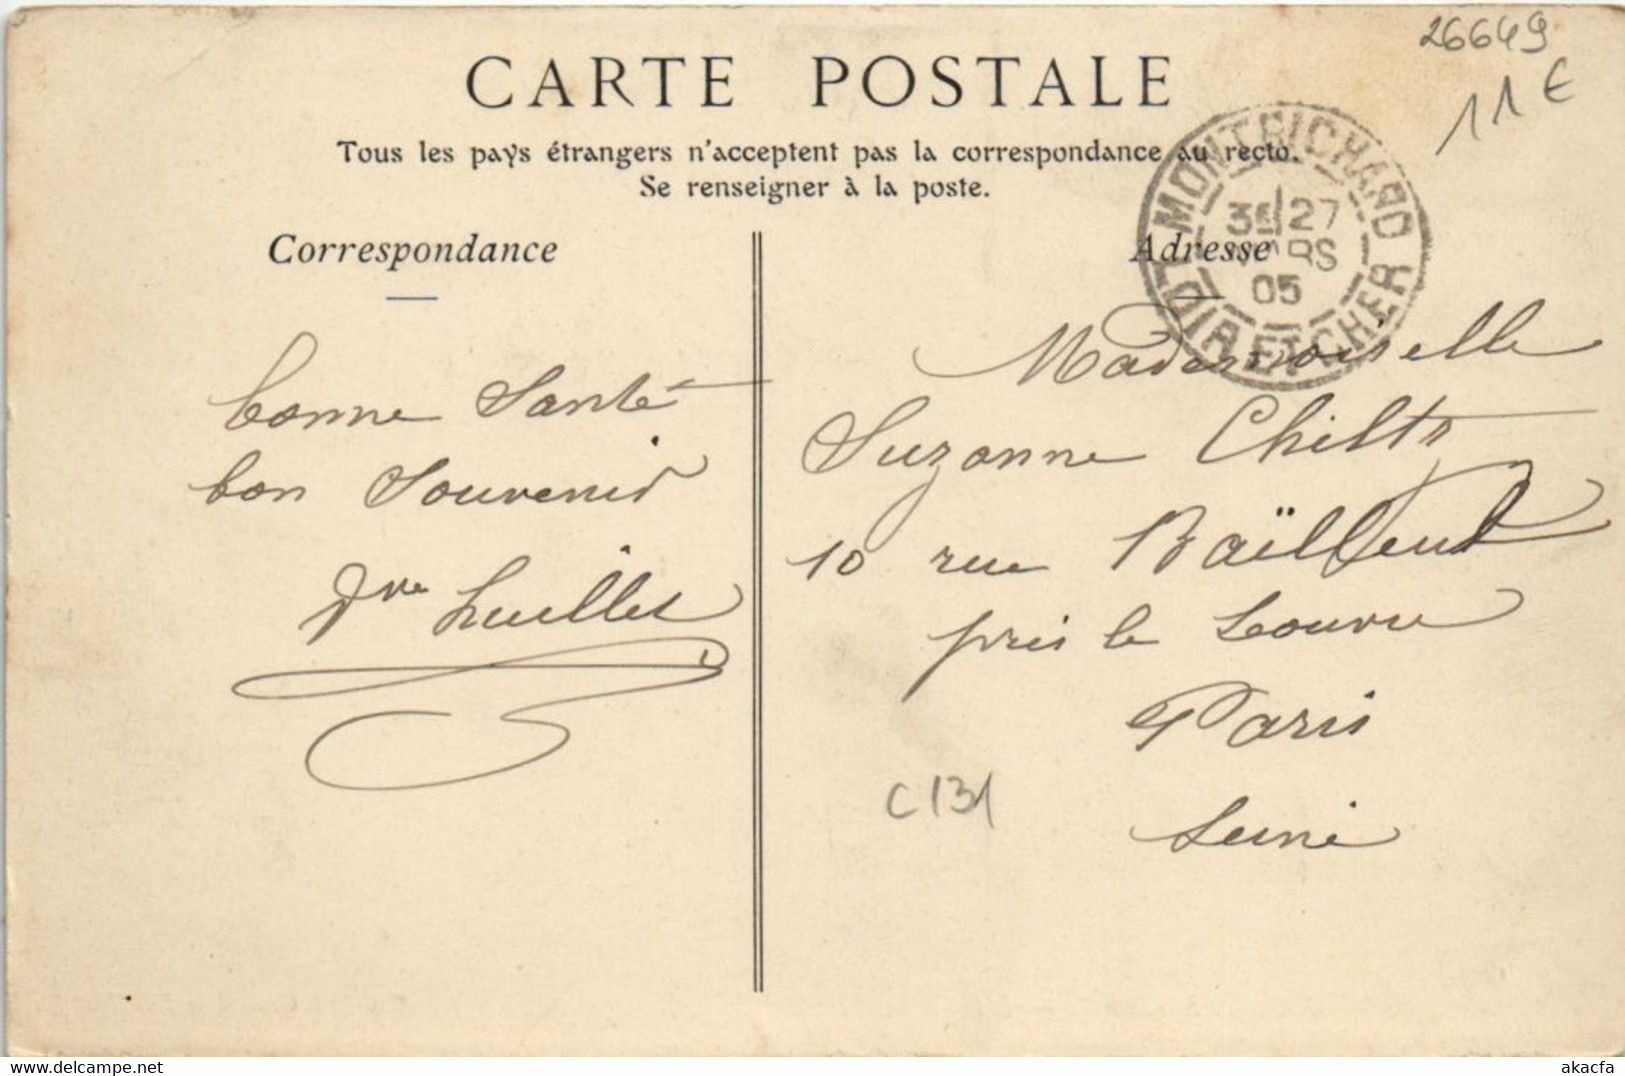 26649
11€
CARTE POSTALE
Tous les pays étrangers n'acceptent pas la correspondance au recto.
Se renseigner à la poste.
Correspondance
Adresse
MONTRICHARD
3E 27
MARS
05
LOIR ET CHER
bonne Santé
bon Souvenir
Vve
Mademoiselle
Suzanne
10 rue Baïlleul
près le Louvre
Paris
Seine
C131
akacfa